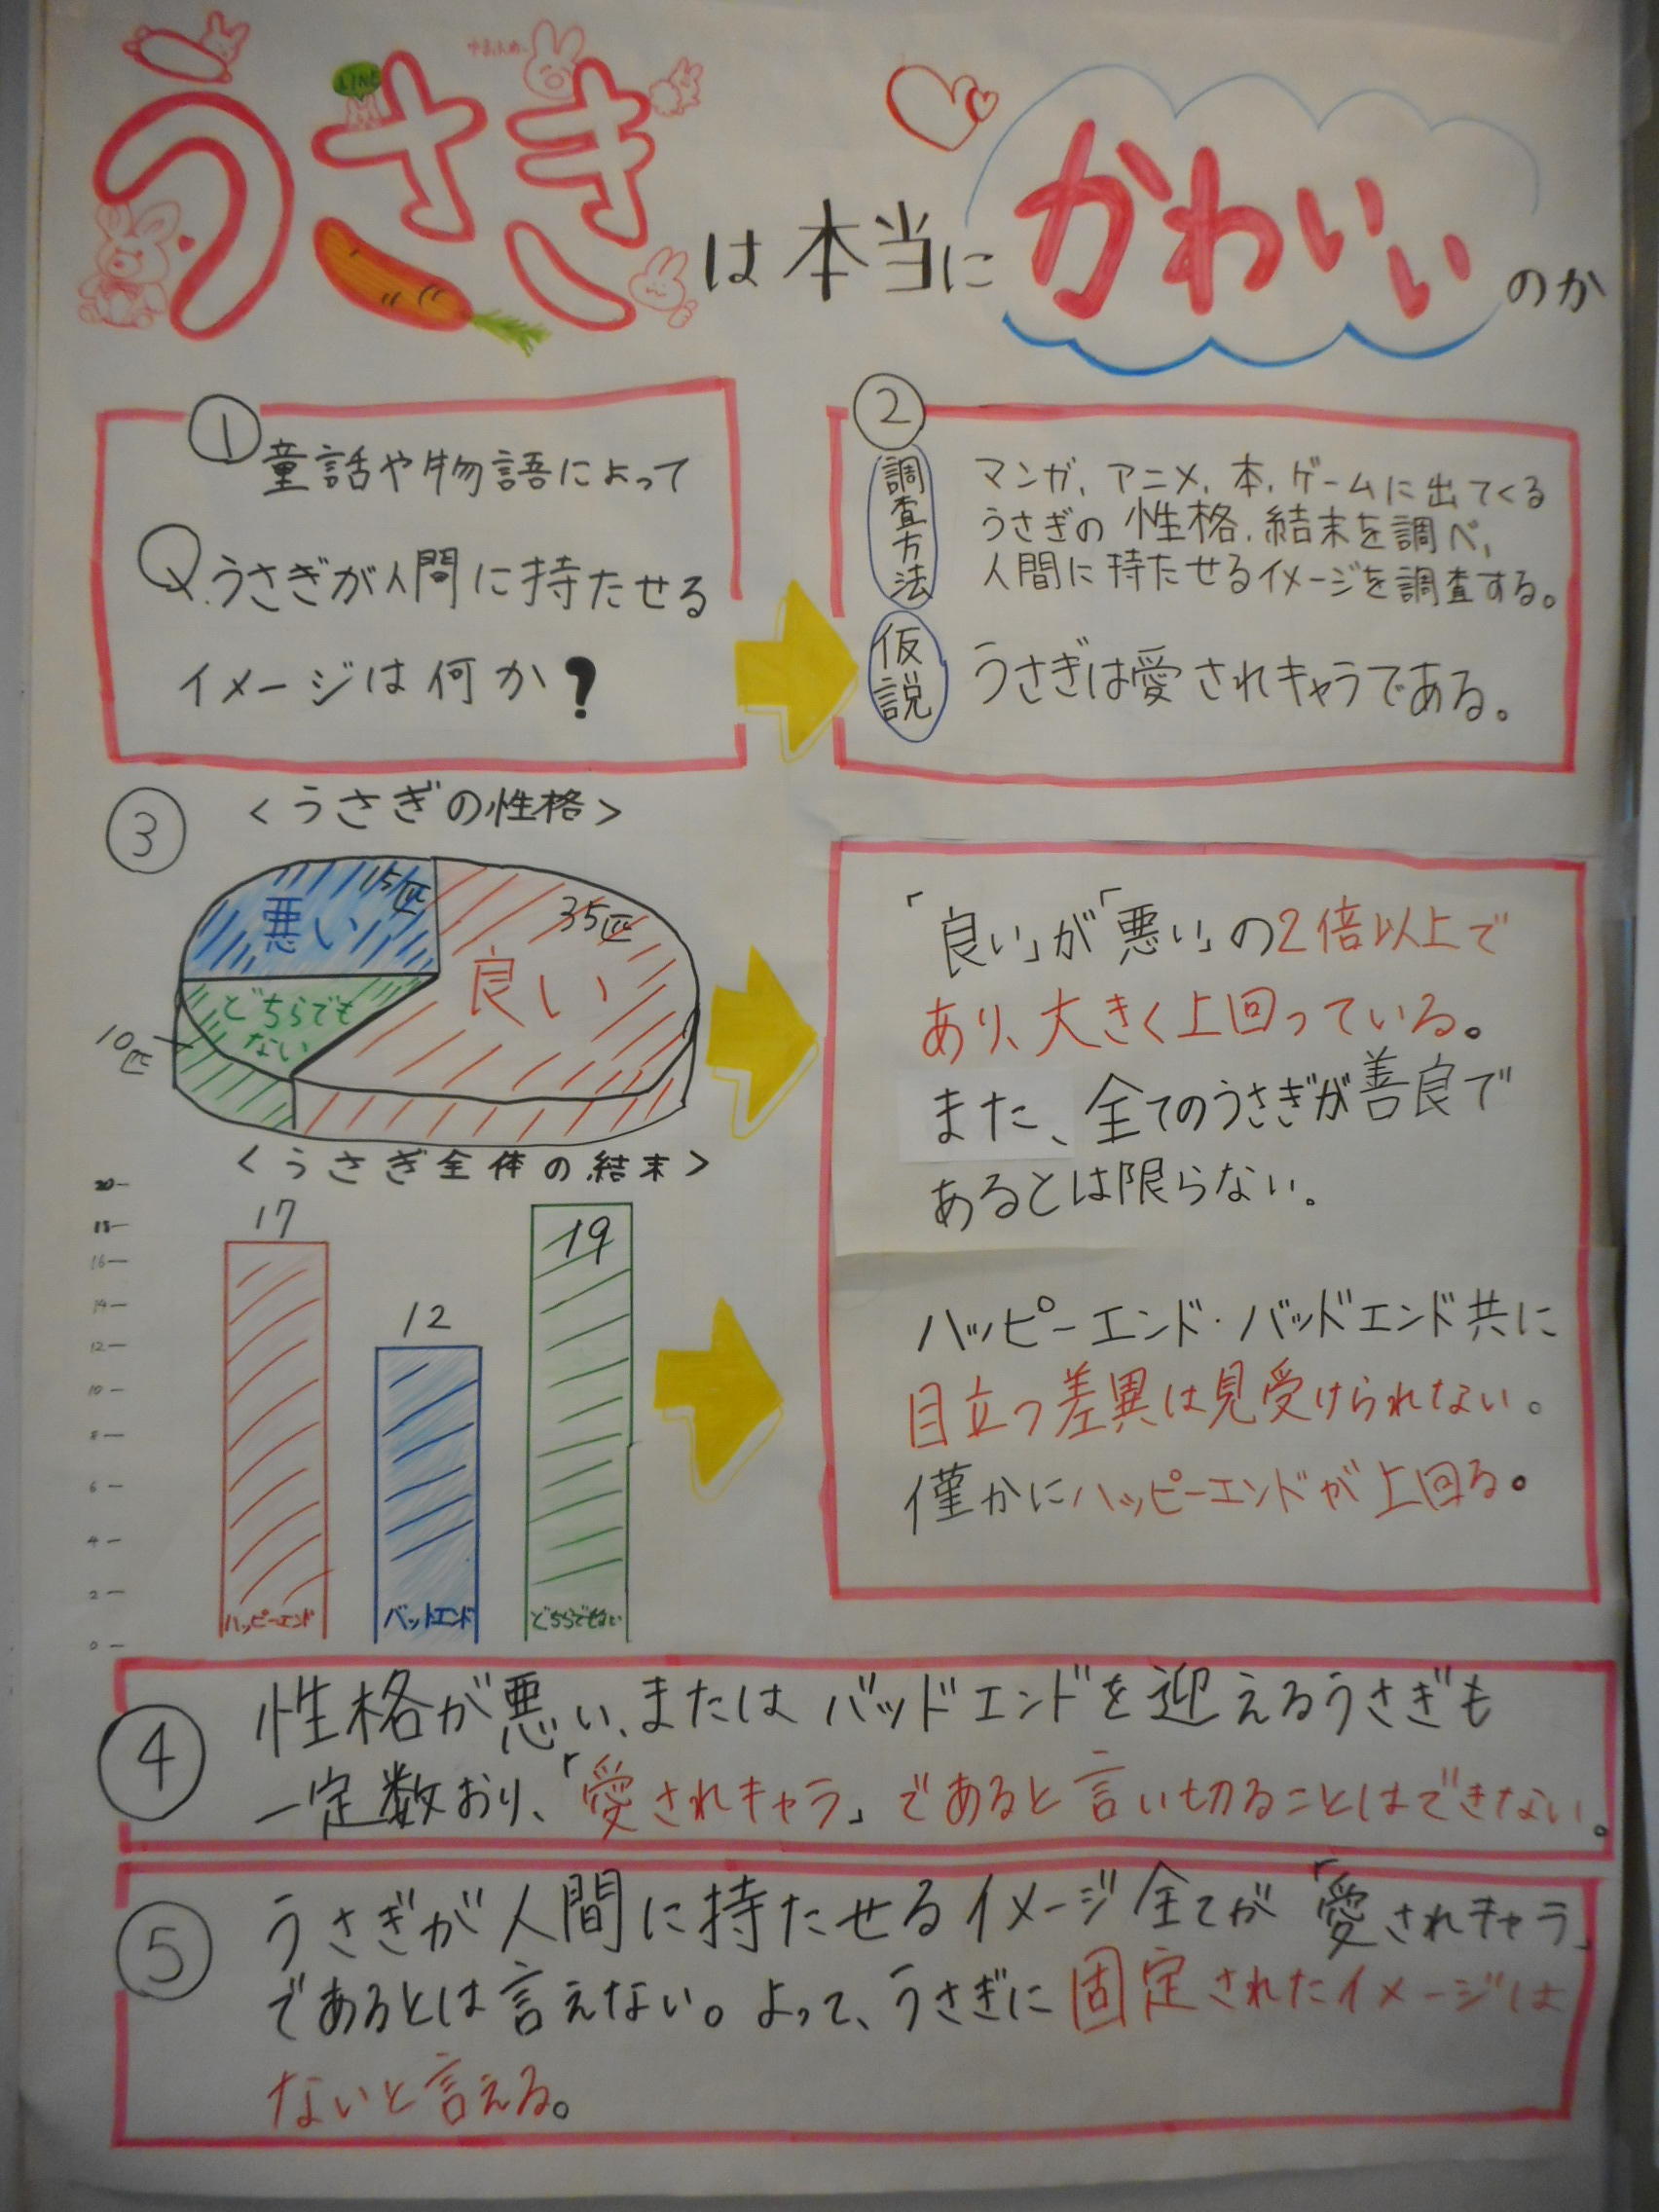 うさぎ
LINE
は本当に
かわいい
のか
①
童話や物語によって
Q.うさぎが人間に持たせる
イメージは何か?
②
調査方法
マンガ、アニメ、本、ゲームに出てくる
うさぎの性格、結末を調べ、
人間に持たせるイメージを調査する。
仮説
うさぎは愛されキャラである。
③
<うさぎの性格>
15匹
悪い
35匹
良い
どちらでも
ない
10匹
「良い」が「悪い」の2倍以上で
あり、大きく上回っている。
また、全てのうさぎが善良で
あるとは限らない。
<うさぎ全体の結末>
20
18
16
14
12
10
8
6
4
2
0
17
12
19
ハッピーエンド
バットエンド
どちらでもない
ハッピーエンド・バッドエンド共に
目立つ差異は見受けられない。
僅かにハッピーエンドが上回る。
④
性格が悪い、またはバッドエンドを迎えるうさぎも
一定数おり、「愛されキャラ」であると言い切ることはできない。
⑤
うさぎが人間に持たせるイメージ全てが「愛されキャラ」
であるとは言えない。よって、うさぎに固定されたイメージは
ないと言える。